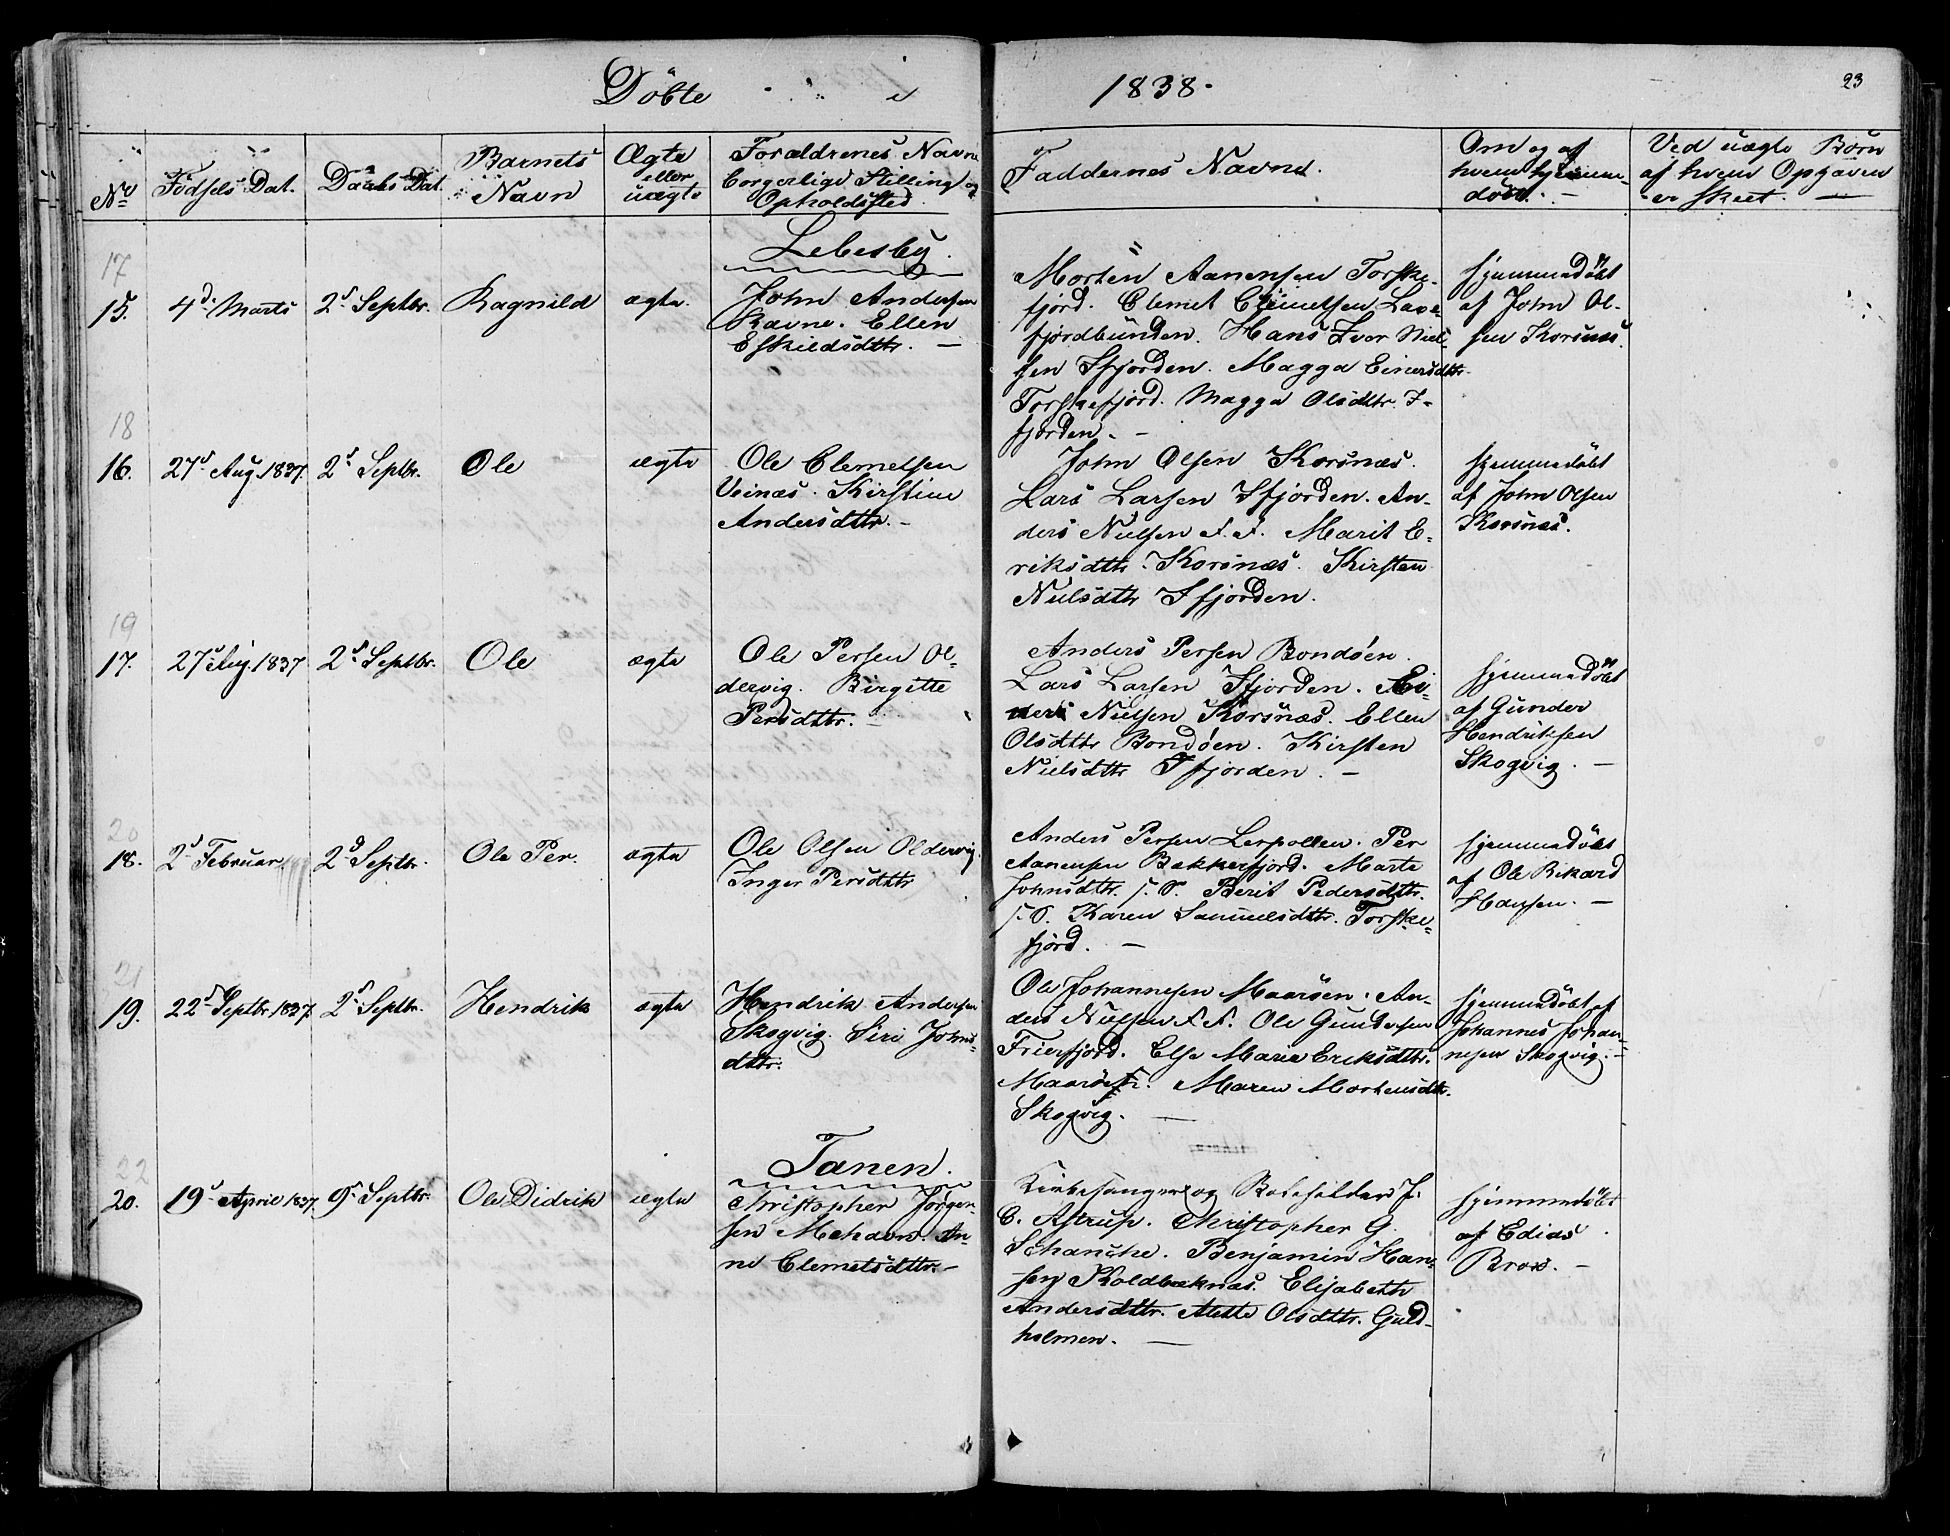 Döbte i 1838.
23
No
Födsels Dat.
Daabs Dat.
Barnets
Navn
Ægte
eller
uægte
Forældrenes Navne
borgerlige Stilling og
Opholdssted.
Faddernes Navne.
Om og af
hvem hjemme-
döbt. —
Ved uægte Börn
af hvem Opgaven
er skeet. —
Lebesby.
17
15.
4d. Marts
2d Septbr.
Ragnild
ægte.
John Andersen
Ravne. Ellen
Eskildsdttr. —
Morten Aanensen Torske-
fjord. Clemet Clemetsen Laxe-
fjordbunden. Hans Ivar Niel-
sen Ifjorden. Magga Einersdttr.
Torskefjord. Magga Olsdttr. I-
fjorden. —
hjemmedöbt
af John Ol-
sen Korsnæs.
18
16.
27d Aug. 1837.
2d Septbr.
Ole
ægte
Ole Clemetsen
Veinæs. Kirstine
Andersdttr. —
John Olsen Korsnæs.
Lars Larsen Ifjorden. An-
ders Nielsen s. S. Marit E-
riksdttr. Korsnæs. Kirsten
Nielsdttr Ifjorden.
hjemmedöbt
af John Olsen
Korsnæs.
19
17.
27d Aug. 1837
2d Septbr.
Ole
ægte
Ole Persen Ol-
dervig. Birgitte
Persdttr.
Anders Persen Bondöen.
Lars Larsen Ifjorden.
Nielsen Korsnæs. Ellen
Olsdttr Bondöen. Kirsten
Nielsdttr Ifjorden. —
hjemmedöbt
af Gunder
Hendriksen
Skogvig. —
20
18.
2d Februar
2d Septbr.
Ole Per.
ægte
Ole Olsen Oldervig.
Inger Persdttr
Anders Persen Lerpollen. Per
Aanensen Bekkerfjord. Marte
Johnsdttr. s. S. Berit Pedersdttr.
s. S. Karen Samuelsdttr. Torske-
fjord. —
hjemmedöbt
af Ole Rikard
Hansen. —
21
19.
22d Septbr. 1837.
2d Septbr.
Hendrik
ægte
Hendrik Andersen
Skogvig. Siri Johns-
dttr.
Ole Johannesen Maaröen. An-
ders Nielsen s. S. Ole Gundersen
Frierfjord. Else Marie Eriksdttr.
Maren Mortensdttr.
Skogvig. —
hjemmedöbt af
Johannes Johan-
nesen Skogvig. —
Tanen.
22
20.
19d April 1837.
9d Septbr.
Ole Didrik
ægte
Christopher Jörgen-
sen Mehavn. An-
ne Clemetsdttr. —
Kirkesanger og J.
C. Astrup. Christopher G.
Schanche. Benjamin Han-
sen Koldbæknæs. Elisabeth
Andersdttr. Mette Olsdttr. Guld-
holmen. —
hjemmedöbt
af Edias
Brox. —